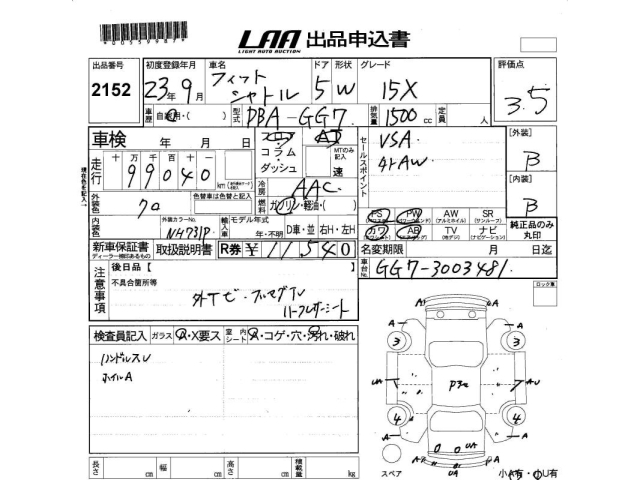 LAA 出品申込書
LIGHT AUTO AUCTION
出品番号 初度登録年月 車名 ドア 形状 グレード 評価点
2152 23年9月 フィット シャトル 5 W 15X 3.5
車歴 自家用・( ) 型式 DBA-GG7 排気量 1500cc 定員 人
車検 年 月 日
コラム・
ダッシュ
AT
MTのみ記入
速
セールスポイント
VSA
4tAW
[外装]
B
[内装]
B
走行 十万 万 千 百 十 一
99040 km
冷房 AAC
外装色 クロ
色替車は色替と記入
燃料 ガソリン・軽油・( )
内装色
外装カラーNo.
NH731P
輸入車 モデル年式
年・不明
D車・並 右H・左H
PS PW AW SR
カワ AB TV ナビ
純正品のみ丸印
新車保証書 取扱説明書 R券 ¥11,540
ディーラー捺印あるもの
名変期限 月 日迄
車台No. GG7-3003481
ロック車
注意事項
後日品【
不具合箇所等
外ナビ・フルセグTV
ハーフレザーシート
検査員記入 ガラス A・X要ス 室内シート A・コゲ・穴・汚れ・破れ
ハンドルスレ
ホイルA
A A
3 3
UA P3 AU
4 4
A A
UA
長さ cm 幅 cm 高さ cm 積載量 kg
スペア 小A有・小U有